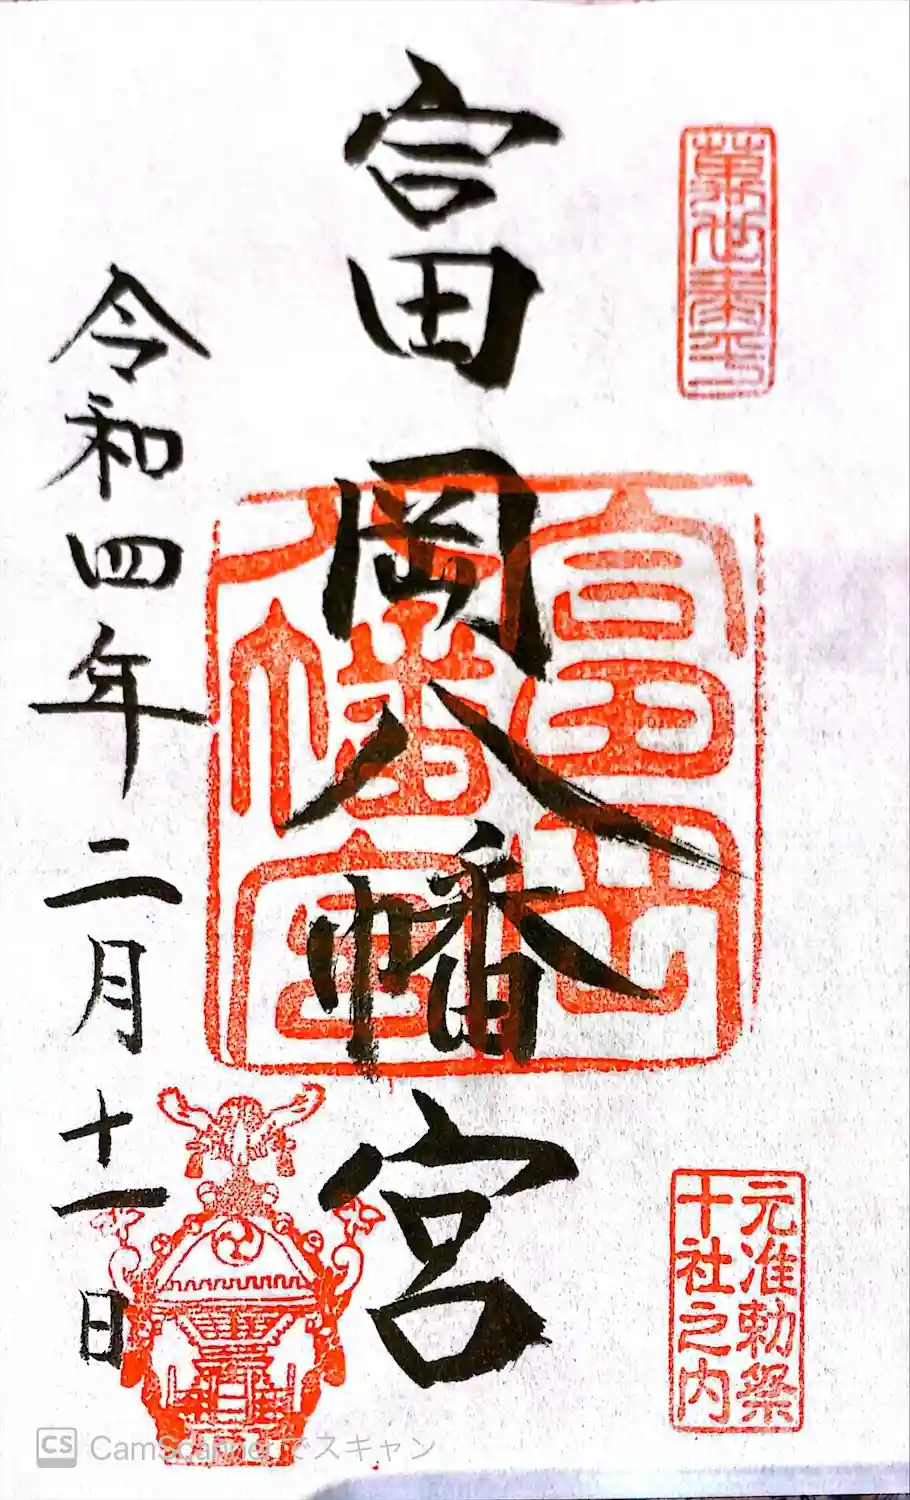 萬世泰平
元准勅祭
十社之内
富岡八幡宮
富岡
八幡宮
令和四年二月十一日
CS CamScannerでスキャン